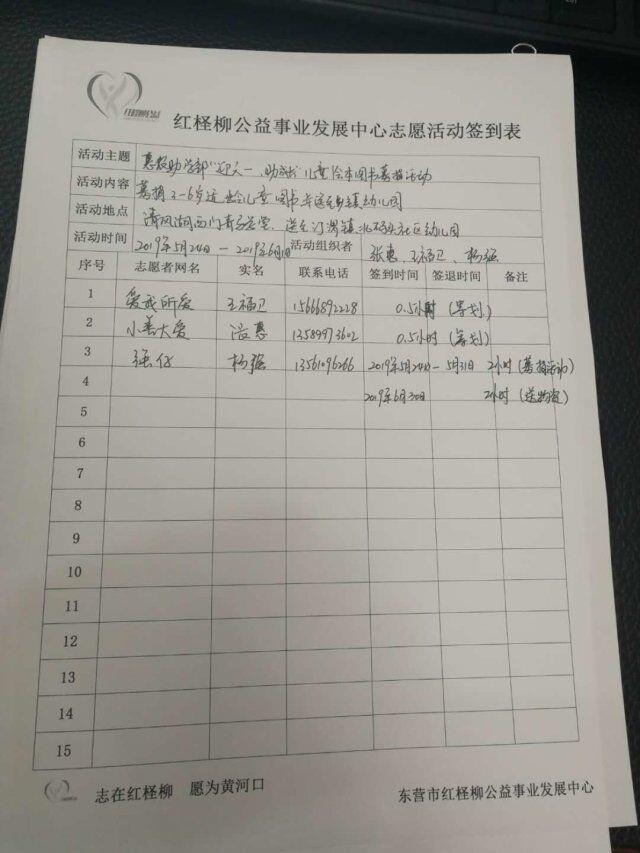 红柽柳公益事业发展中心志愿活动签到表
活动主题 惠农助学部"迎六一、助成长"儿童绘本图书募捐活动
活动内容 募捐2-6岁适龄儿童图书并送至乡镇幼儿园
活动地点 清风湖西门 送至汀罗镇 社区幼儿园
活动时间 2019年5月24日—2019年6月 活动组织者 张惠、王福卫、杨强
序号 志愿者网名 实名 联系电话 签到时间 签退时间 备注
1 爱我所爱 王福卫 15666892228 0.5小时(筹划)
2 小善大爱 张惠 13589973602 0.5小时(筹划)
3 强仔 杨强 13561096266 2019年5月24日—5月31日 2小时(募捐活动)
4 2019年6月30日 2小时(送物资)
5
6
7
8
9
10
11
12
13
14
15
志在红柽柳 愿为黄河口
东营市红柽柳公益事业发展中心